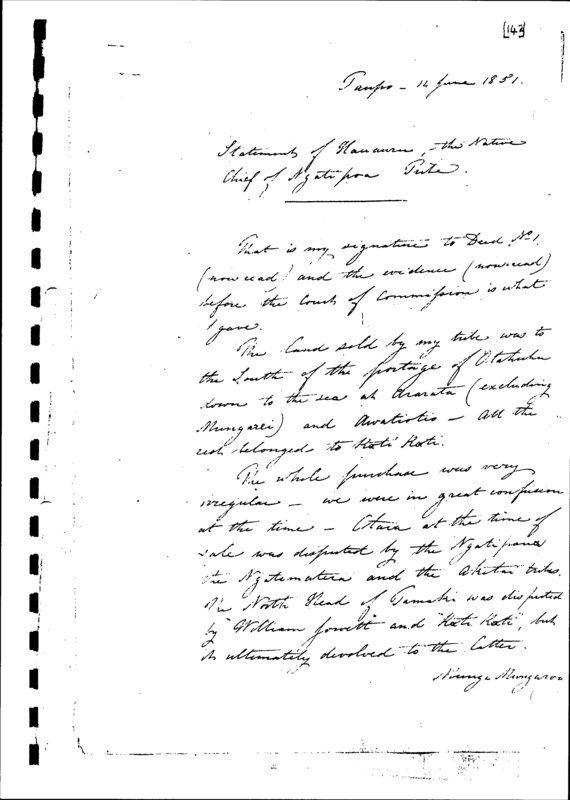 [143]
Taupo - 14 June 1851.
Statement of Hauauru, the Native
Chief of Ngatipoa Tribe.
That is my signature to Deed No 1.
(now read) and the evidence (now read)
before the Court of Commission is what
I gave.
The land sold by my tribe was to
the South of the portage of Otahuhu
down to the sea at Ararata (excluding
Mungarei) and Awatiotio - All the
rest belonged to Kati Kati.
The whole purchase was very
irregular - we were in great confusion
at the time - Otara at the time of
sale was disputed by the Ngatipaoa
the Ngatematera and the Akitai tribes.
The North Head of Tamaki was disputed
by "William Jowett" and "Kati Kati", but
it ultimately devolved to the latter.